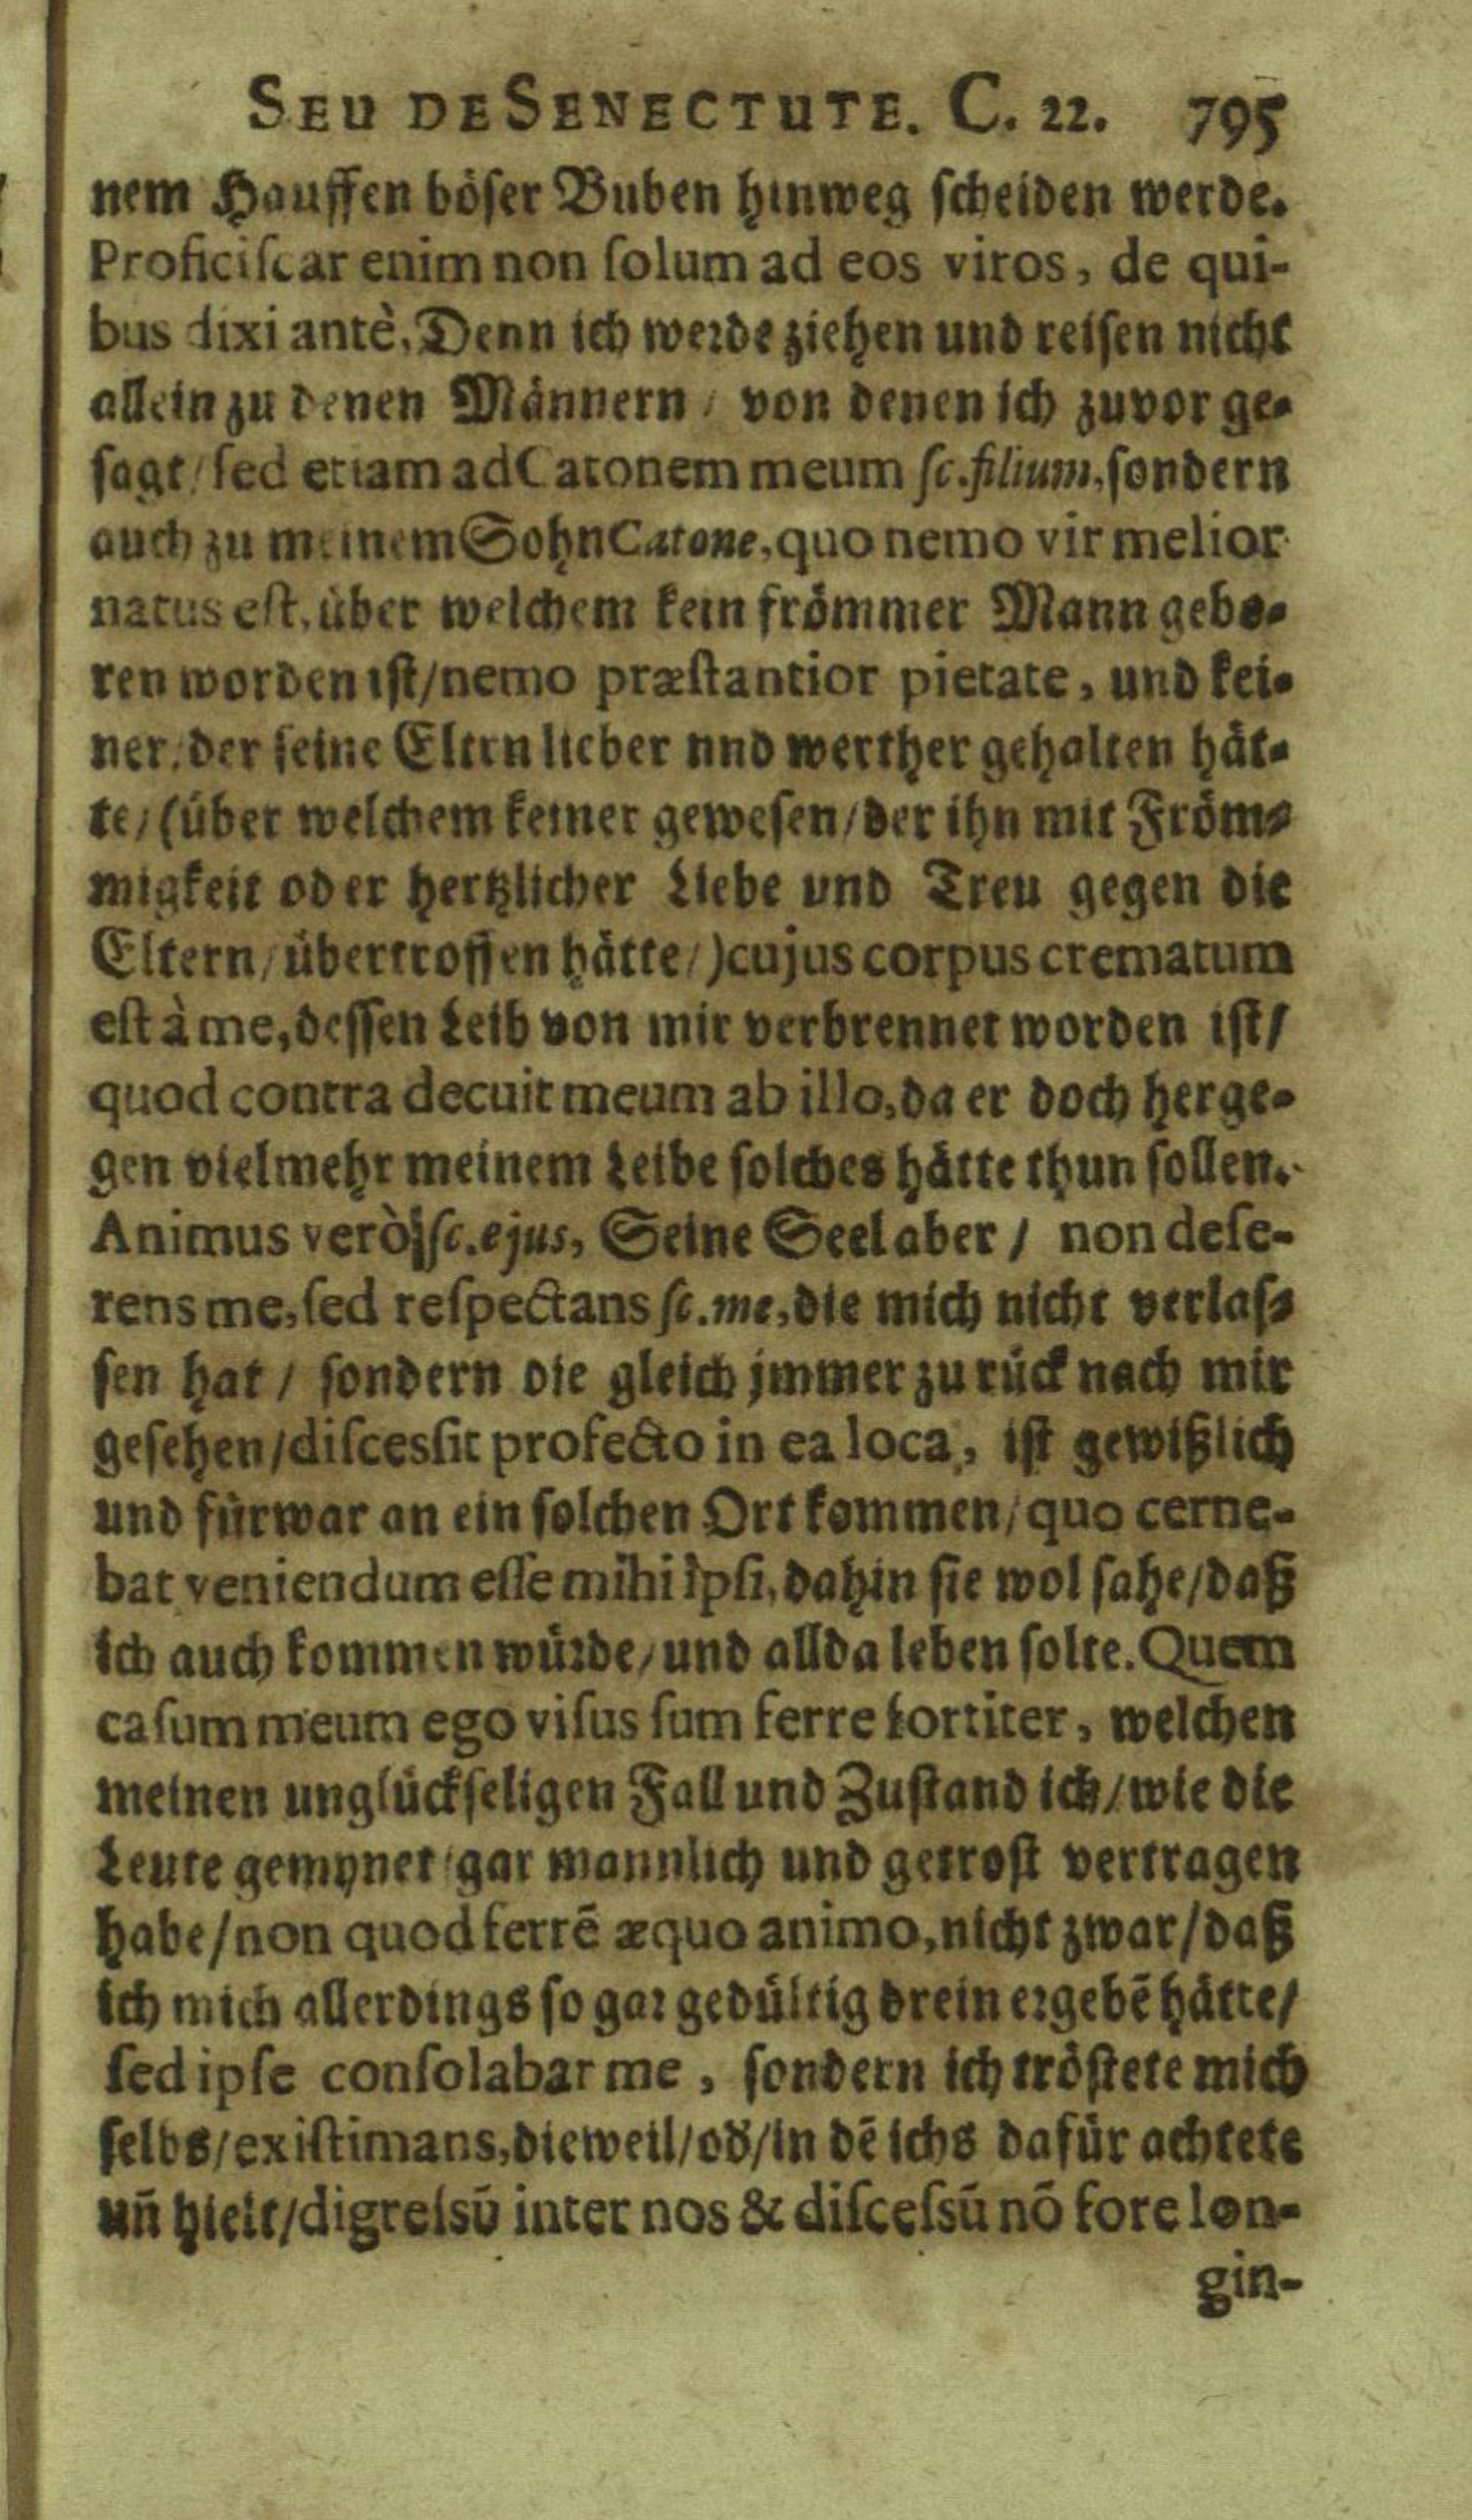 SEU DE SENECTUTE. C. 22. 795
nem Hauffen böser Buben hinweg scheiden werde.
Proficiscar enim non solum ad eos viros, de qui-
bus dixi antè, Denn ich werde ziehen und reisen nicht
allein zu denen Männern / von denen ich zuvor ge-
sagt / sed etiam ad Catonem meum sc. filium, sondern
auch zu meinem Sohn Catone, quo nemo vir melior
natus est, über welchem kein frömmer Mann gebo-
ren worden ist / nemo præstantior pietate, und kei-
ner / der seine Eltrn lieber nnd werther gehalten hät-
te / (über welchem keiner gewesen / der ihn mit Fröm-
migkeit oder hertzlicher Liebe und Treu gegen die
Eltern / übertroffen hätte /) cujus corpus crematum
est à me, dessen Leib von mir verbrennet worden ist /
quod contra decuit meum ab illo, da er doch herge-
gen vielmehr meinem Leibe solches hätte thun sollen.
Animus verò sc. ejus, Seine Seel aber / non dese-
rens me, sed respectans sc. me, die mich nicht verlas-
sen hat / sondern die gleich jmmer zu rück nach mir
gesehen / discessit profecto in ea loca, ist gewißlich
und fürwar an ein solchen Ort kommen / quo cerne-
bat veniendum esse mihi ipsi, dahin sie wol sahe / daß
ich auch kommen würde / und allda leben solte. Quem
casum meum ego visus sum ferre fortiter, welchen
meinen unglückseligen Fall und Zustand ich / wie die
Leute gemynet / gar mannlich und getrost vertragen
habe / non quod ferrē æquo animo, nicht zwar / daß
ich mich allerdings so gar gedültig drein ergebē hätte /
sed ipse consolabar me, sondern ich tröstete mich
selbs / existimans, dieweil / oď / in dē ichs dafür achtete
uñ hielt / digressū inter nos & discessū nō fore lon-
gin-